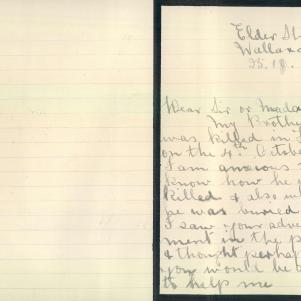 Elder St
Wallaroo
25.
Dear Sir or Mada
My Brothe
was killed in
on the 4th Octobe
I am anxious
know how he
killed & also
he was buried
I saw your adve
ment in the p
& thought perhap
you would be a
to help me